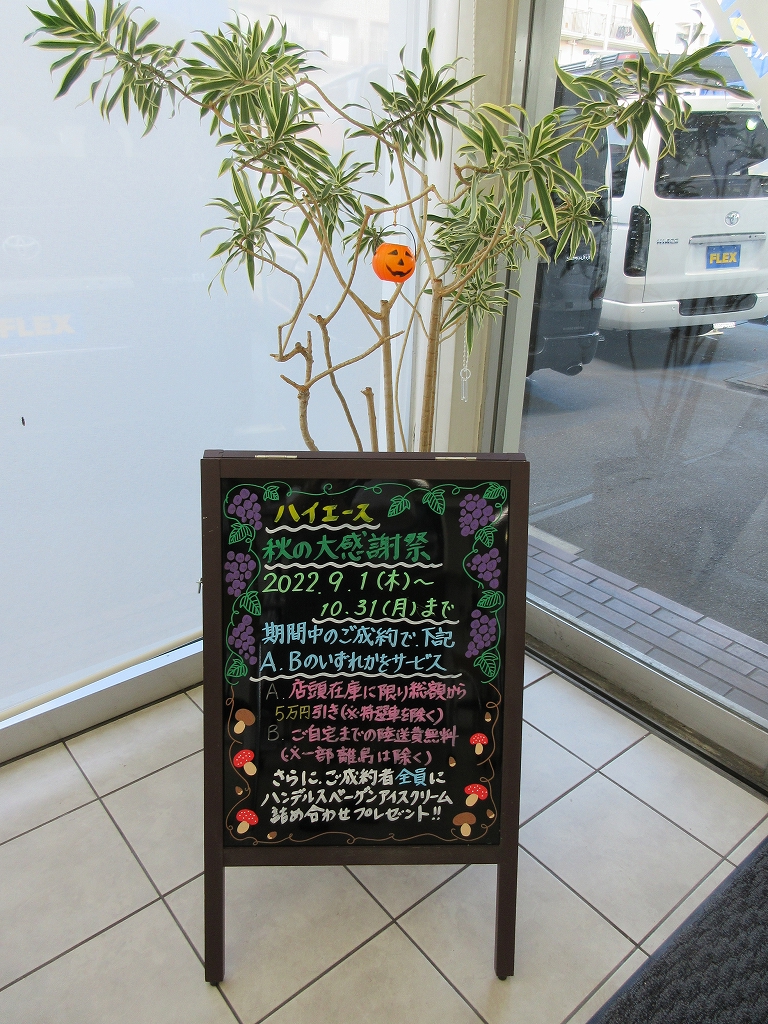 ハイエース
秋の大感謝祭
2022.9.1(木)～
10.31(月)まで
期間中のご成約で、下記
A.Bのいずれかをサービス
A. 店頭在庫に限り総額から
5万円引き(※特選車を除く)
B. ご自宅までの陸送費無料
(※一部離島は除く)
さらに、ご成約者全員に
ハンデルスベーゲンアイスクリーム
詰め合わせプレゼント!!
FLEX
FLEX